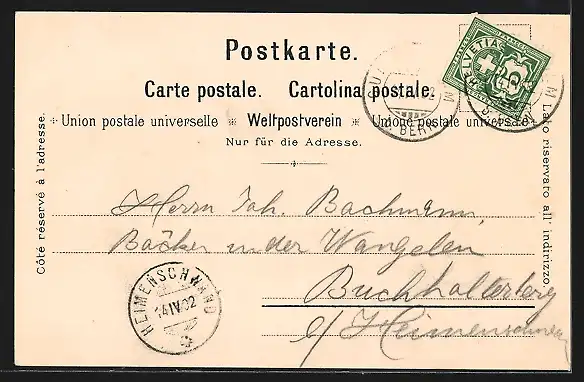 Postkarte.
Carte postale. Cartolina postale.
Union postale universelle * Weltpostverein * Unione postale universale
Nur für die Adresse.
Côté réservé à l'adresse.
Lato riservato all' indirizzo.
HELVETIA
5
BERN
Herrn Joh. Bachmann,
Bäcker in der Wangelen
Buchholterberg
b/Heimenschwand
HEIMENSCHWAND
14 IV 02